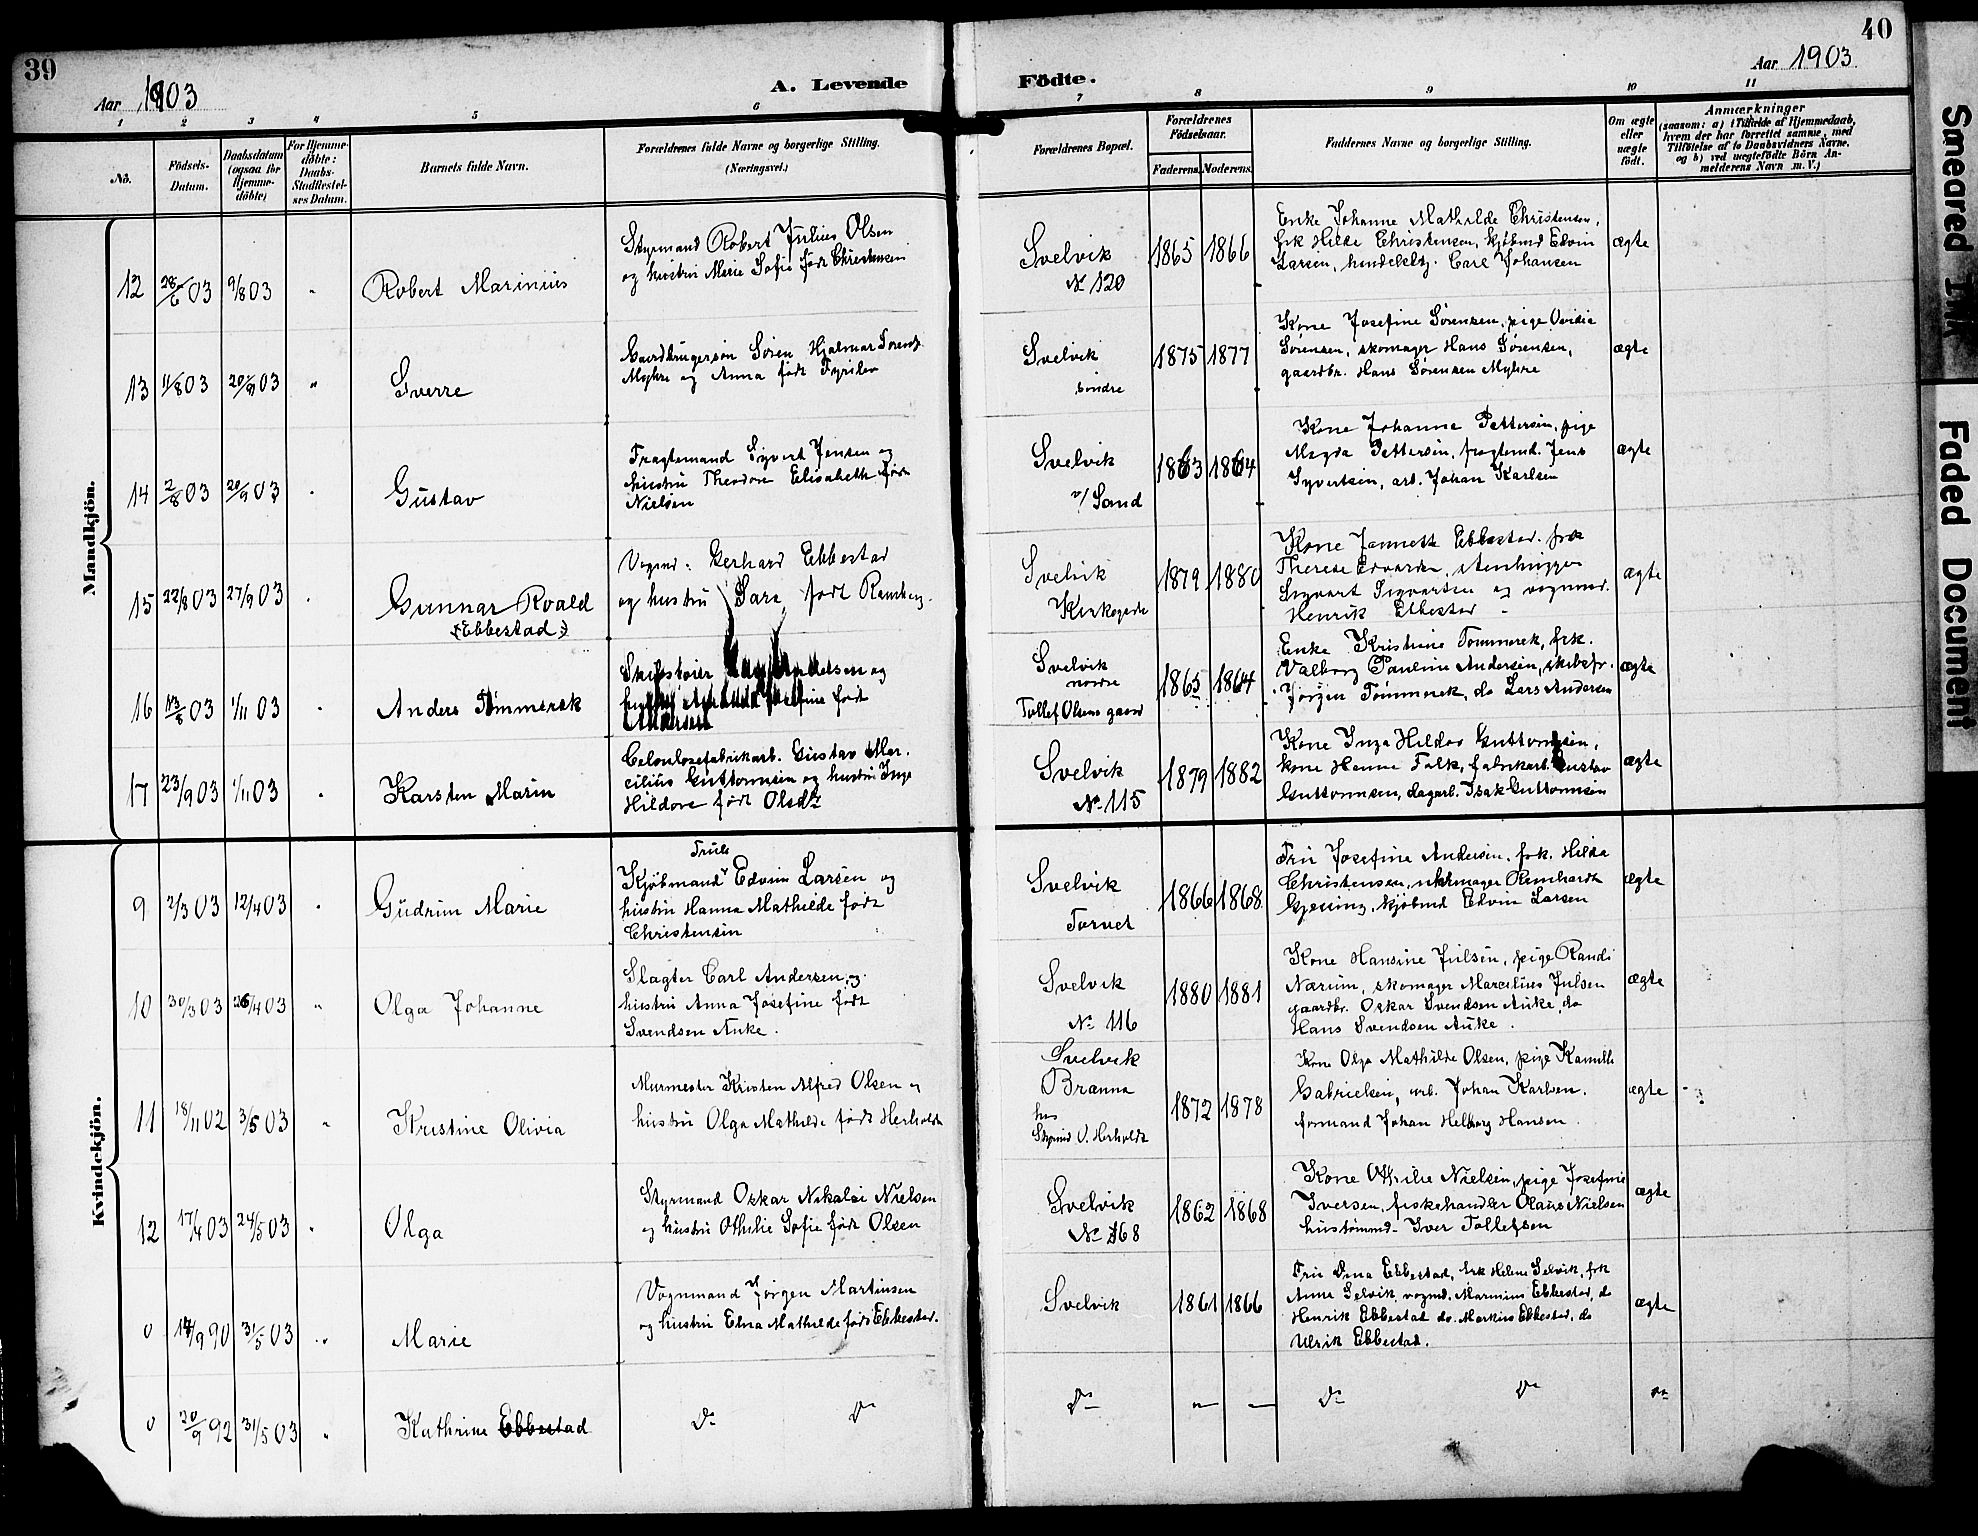 39
Aar 1903
A. Levende
1 2 3 4 5 6
No.
Födsels-Datum.
Daabsdatum (ogsaa for Hjemme-döbte)
For Hjemme-döbte: Daabs-Stadfæstel-ses Datum.
Barnets fulde Navn.
Forældrenes fulde Navne og borgerlige Stilling.
(Næringsvei.)
Mandkjön.
12 28/6 03 9/8 03 " Robert Marinius
Styrmand Robert Julius Olsen
og hustru Marie Sofie født Christensen
13 11/8 03 20/9 03 " Sverre
Gaardbrugersøn Søren Hjalmar Sørens.
Myhre og Anna født
14 2/8 03 20/9 03 " Gustav
Fragtemand Syvert Jensen og
hustru Theodora Elisabeth født
Nielsen
15 22/8 03 27/9 03 " Gunnar Roald
(Ebbestad)
Vognmd. Gerhard Ebbestad
og hustru Sara født Ramberg.
16 03 1/11 03 " Anders Tømmerek
og
Josefine født
Andersen
17 23/9 03 1/11 03 " Karsten Marin
Celulosefabrikarb. Gustav Mar.
cilius Guttormsen og hustru Inga
Hildora født
Kvindekjön.
9 2/3 03 12/4 03 " Gudrun Marie
Truls
Kjøbmand Edvin Larsen og
hustru Hanna Mathilde født
Christensen
10 30/3 03 26/4 03 " Olga Johanne
Slagter Carl Andersen og
hustru Anna Josefine født
Svendsen Auke.
11 18/11 02 3/5 03 " Kristine Olivia
Murmester Kristen Alfred Olsen og
hustru Olga Mathilde født Herholdt
12 17/4 03 24/5 03 " Olga
Styrmand Oskar Nikolai Nielsen
og hustru Othilie Sofie født Olsen
0 14/9 90 31/5 03 " Marie
Vognmand Jørgen Martinsen
og hustru Elna Mathilde født Ebbestad.
0 20/9 92 31/5 03 " Kathrine Ebbestad
Do Do
40
Aar 1903
Födte.
7 8 9 10 11
Forældrenes Bopæl.
Forældrenes Födselsaar.
Faderens. Moderens.
Faddernes Navne og borgerlige Stilling.
Om ægte eller uægte födt.
Anmærkninger
(saasom: a) i Tilfælde af Hjemmedaab,
hvem der har forrettet samme, med
Tilföielse af to Daabsvidners Navne.
og b) ved uægtefödte Börn An-
melderens Navn m. V.)
Svelvik
No 120
1865 1866
Enke Johanne Mathilde Christensen,
frk Hilda Christensen, kjøbmd Edvin
Larsen, handelsbtj. Carl Johansen
ægte
Svelvik
søndre
1875 1877
Kone Josefine Sørensen, pige Ovidia
Sørensen, skomager Hans Sørensen,
gaardbr. Hans Sørensen Myhre
ægte
Svelvik
v/ Sand
1863 1864
Kone Johanne Pettersen, pige
Magda Pettersen, fragtemd. Jens
Syvertsen, arb. Johan Karlsen
ægte
Svelvik
Kirkegade
1879 1880
Kone Jannette Ebbestad. frk
Therese Edvardsen, stenhugger
Sigvart Sigvartsen og vognmd.
Henrik Ebbestad
ægte
Svelvik
nordre
Tollef Olsens gaard
1865 1864
Enke Kristine Tømmerek, frk.
Valborg Pauline Andersen, skibsfr.
Jørgen Tømmerek, do Lars Andersen
ægte
Svelvik
No. 115
1879 1882
Kone Inga Hildor Guttormsen,
kone Hanna Falk, fabrikarb. Gustav
Guttormsen, dagarb. Isak Guttormsen
ægte
Svelvik
Torvet
1866 1868
Fru Josefine Andersen, frk. Hilda
Christensen, urmager Reinhardt
Gjessing, kjøbmd Edvin Larsen
ægte
Svelvik
No 116
1880 1881
Kone Hansine Julsen, pige Randi
Nærum, skomager Marcilius Julsen
gaardbr. Oskar Svendsen Auke, do
Hans Svendsen Auke.
ægte
Svelvik
Branna
hos
Styrmd O. Herholdt
1872 1878
Kone Olga Mathilde Olsen, pige Kamilla
Gabrielsen, arb. Johan Karlsen.
formand Johan Helberg Hansen.
ægte
Svelvik
No 168
1862 1868
Kone Othilie Nielsen, pige Josefine
Iversen, fiskehandler Olaus Nielsen
hustømmd. Iver Tollefsen
ægte
Svelvik
1861 1866
Fru Elna Ebbestad, frk Helene Selvik, frk
Anna Selvik, vognmd. Marinius Ebbestad, do
Henrik Ebbestad do. Markus Ebbestad, do
Ulrik Ebbestad.
ægte
Do Do Do Do
Smeared Ink
Faded Document